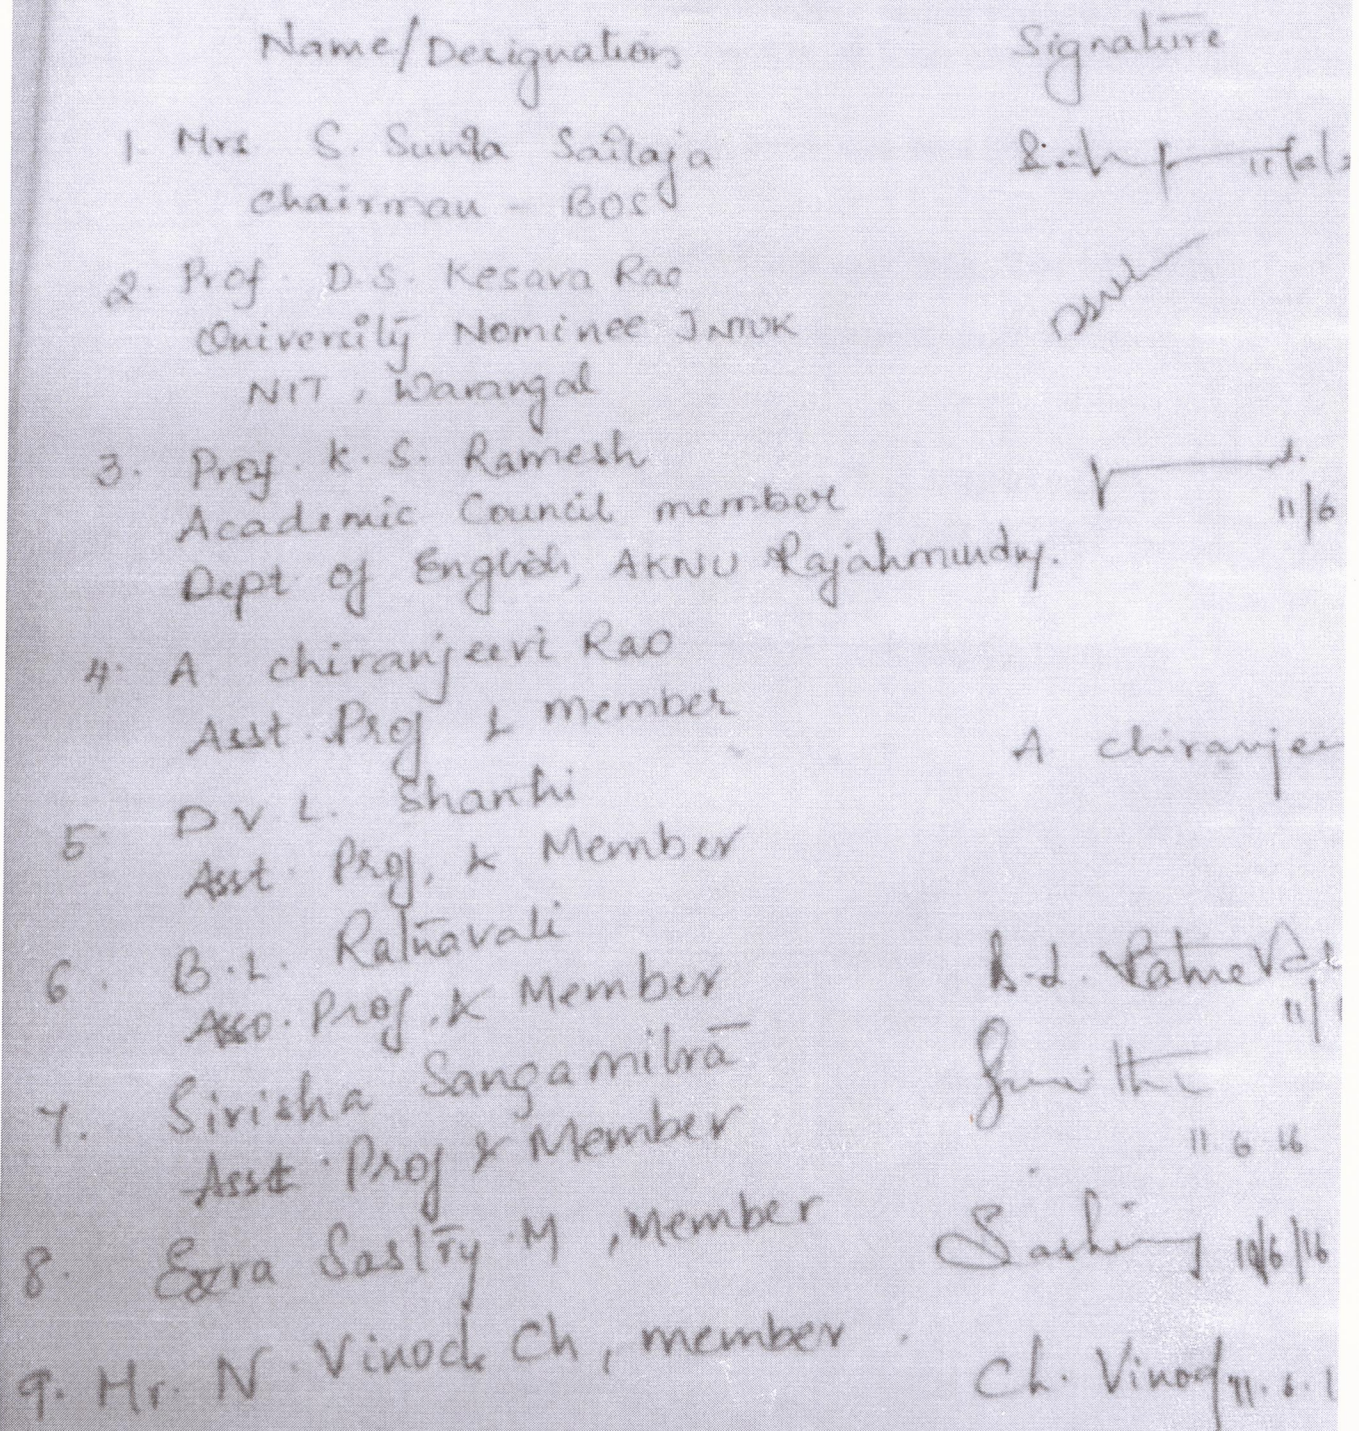 Name/Designation Signature
1. Mrs S. Sunita Sailaja
Chairman - BOS
2. Prof. D.S. Kesava Rao
University Nominee JNTUK
NIT, Warangal
3. Prof. K. S. Ramesh
Academic Council member 11/6
Dept of English, AKNU Rajahmundry.
4. A chiranjeevi Rao
Asst. Prof & member A chiranjee
5. D V. L. Shanthi
Asst. Prof, & Member
6. B.L. Ratnavali
Asso. Prof. & Member 11/
7. Sirisha Sangamitra
Asst. Prof & Member 11 6 16
8. Ezra Sastry M, Member 11/6/16
9. Mr. N. Vinod Ch, member. Ch. Vinod 11.6.1